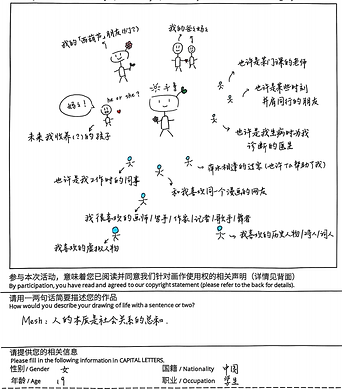 我的爸爸妈妈
he or she?
妈妈！
未来我收养(?)的孩子
也许是某门课的老师
也许是某些时刻
并肩同行的朋友
也许是我生病时为我
诊断的医生
萍水相逢的过客(也许TA帮助了我)
也许是我工作时的同事
和我喜欢同一个漫画的网友
我很喜欢的画师/写手/作家/记者/歌手/舞者
我喜欢的虚拟人物
我喜欢的历史人物/诗人/词人
参与本次活动，意味着您已阅读并同意我们针对画作使用权的相关声明（详情见背面）
By participation, you have read and agreed to our copyright statement (please refer to the back for details).
请用一两句话简要描述您的作品
How would you describe your drawing of life with a sentence or two?
Mesh：人的本质是社会关系的总和。
请提供您的相关信息
Please fill in the following information in CAPITAL LETTERS.
性别/Gender 女 国籍/Nationality 中国
年龄/Age 19 职业/Occupation 学生